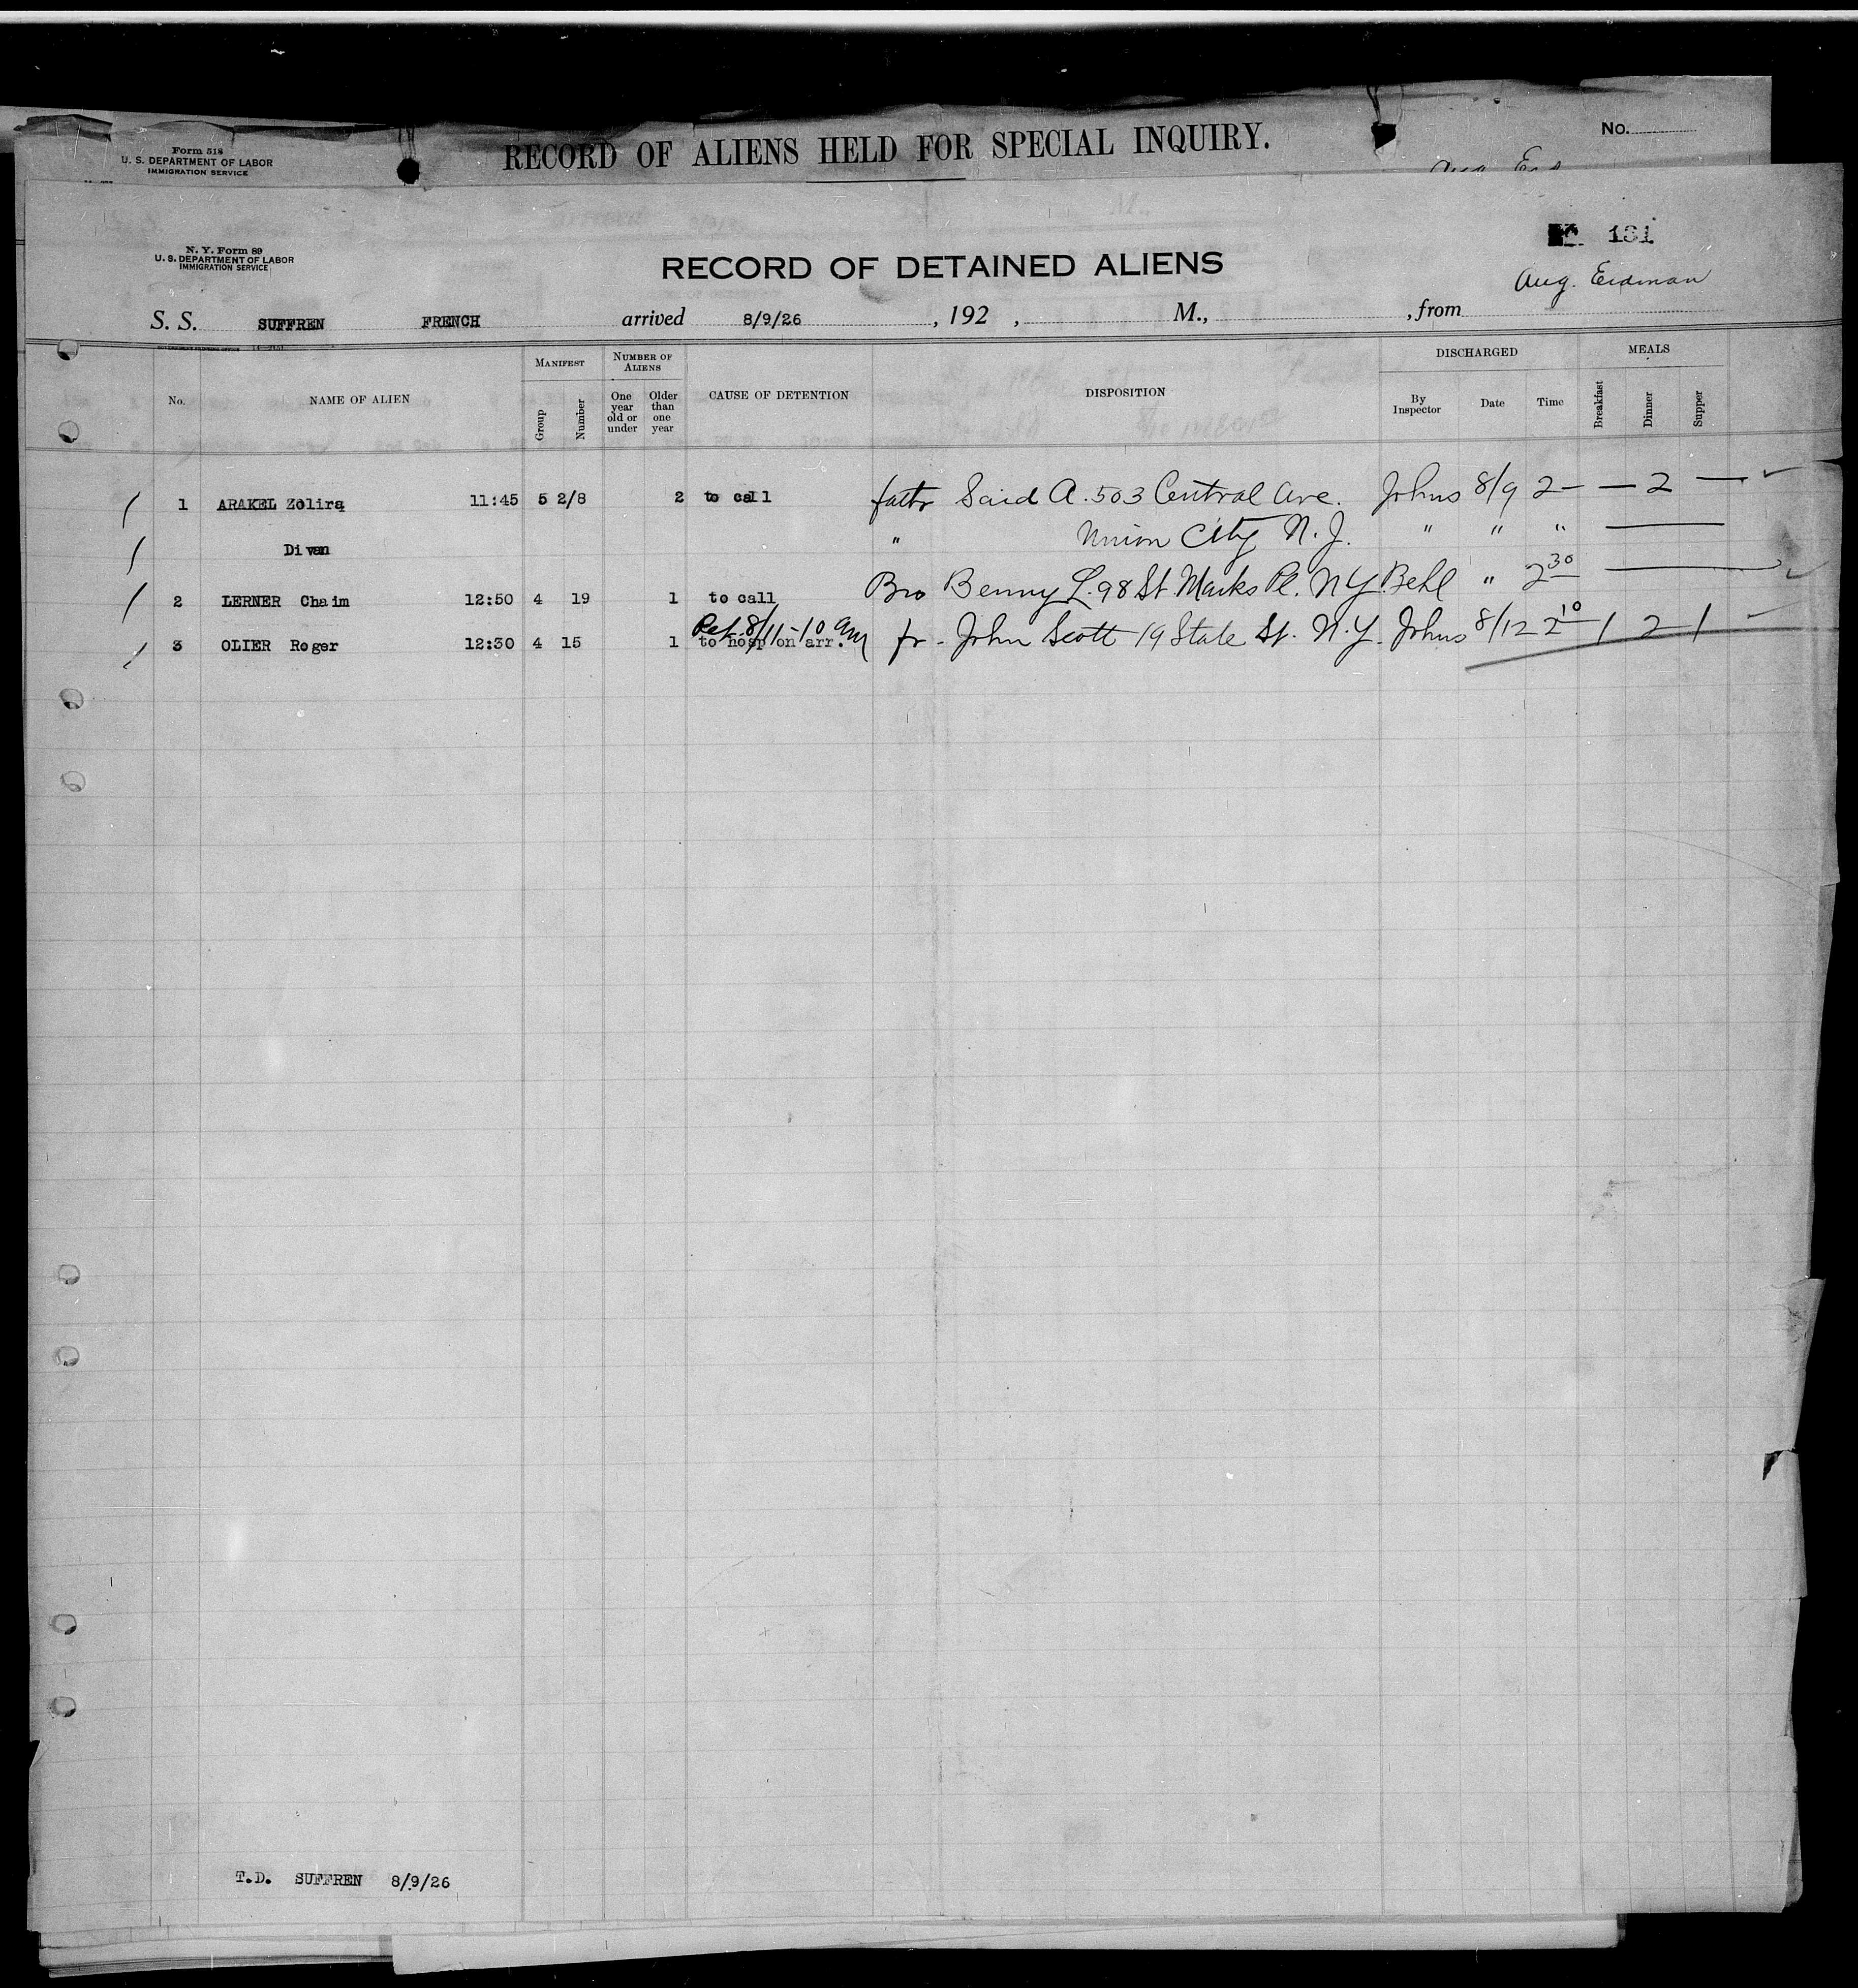 Form 518
U. S. DEPARTMENT OF LABOR
IMMIGRATION SERVICE
RECORD OF ALIENS HELD FOR SPECIAL INQUIRY.
No.
N. Y. Form 89
U. S. DEPARTMENT OF LABOR
IMMIGRATION SERVICE
RECORD OF DETAINED ALIENS
181
Aug. Eidman
S. S. SUFFREN FRENCH arrived 8/9/26, 192 , M., , from
MANIFEST NUMBER OF ALIENS DISCHARGED MEALS
No. NAME OF ALIEN Group Number One year old or under Older than one year CAUSE OF DETENTION DISPOSITION By Inspector Date Time Breakfast Dinner Supper
1 ARAKEL Zolira 11:45 5 2/8 2 to call fathr Said A. 503 Central Ave. Johns 8/9 2— — 2 —
Divan " Union City N. J. " " "
2 LERNER Chaim 12:50 4 19 1 to call Bro Benny L. 98 St Marks Pl. N Y. Behl " 2 30
Ret. 8/11-10 AM
3 OLIER Roger 12:30 4 15 1 to hosp on arr. fr - John Scott 19 State St. N.Y. Johns 8/12 2 10 1 2 1
T.D. SUFFREN 8/9/26